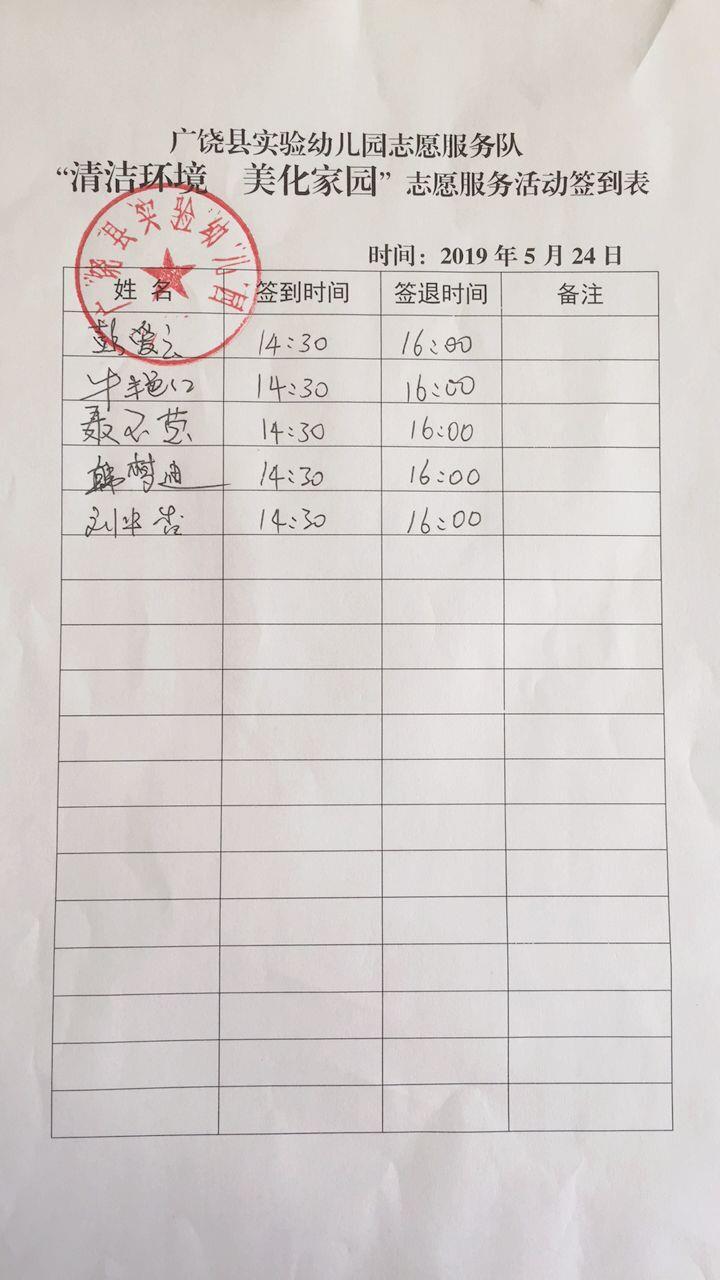 广饶县实验幼儿园志愿服务队
“清洁环境　美化家园”志愿服务活动签到表
广饶县实验幼儿园
时间：2019年5月24日
姓名 签到时间 签退时间 备注
彭爱云 14:30 16:00
牛艳 14:30 16:00
聂 14:30 16:00
韩梦迪 14:30 16:00
刘华 14:30 16:00